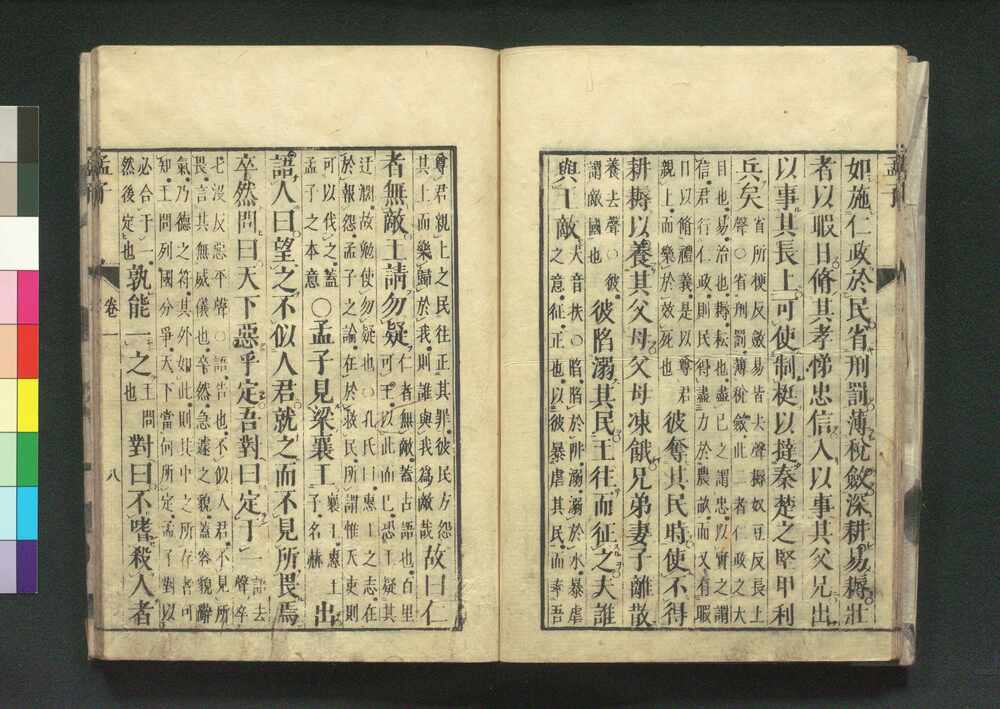 孟子
如施仁政於民省刑罰薄稅斂深耕易耨壯
者以暇日脩其孝悌忠信入以事其父兄出
以事其長上可使制梃以撻秦楚之堅甲利
兵矣
省所梗反斂易皆去聲耨奴豆反長上
聲○省刑罰薄稅斂此二者仁政之大
目也易治也耨耘也盡已之謂忠以實之謂
信君行仁政則民得盡力於農畝而又有暇
日以脩禮義是以尊君
親上而樂於效死也
彼奪其民時使不得
耕耨以養其父母父母凍餓兄弟妻子離散
養去聲○彼
謂敵國也
彼陷溺其民王往而征之夫誰
與王敵
夫音扶○陷陷於阱溺溺於水暴虐
之意征正也以彼暴虐其民而率吾
尊君親上之民往正其罪彼民方怨
其上而樂歸於我則誰與我為敵哉
故曰仁
者無敵王請勿疑
仁者無敵蓋古語也百里
可王以此而已恐王疑其
迂濶故勉使勿疑也○孔氏曰惠王之志在
於報怨孟子之論在於救民所謂惟天吏則
可以伐之蓋
孟子之本意
○孟子見梁襄王
襄王惠王
子名赫
出
語人曰望之不似人君就之而不見所畏焉
卒然問曰天下惡乎定吾對曰定于一
語去
聲卒
七沒反惡平聲○語告也不似人君不見所
畏言其無威儀也卒然急遽之貌蓋容貌辭
氣乃德之符其外如此則其中之所存者可
知王問列國分爭天下當何所定孟子對以
必合于一
然後定也
孰能一之
王問
也
對曰不嗜殺人者
孟子
卷一
八